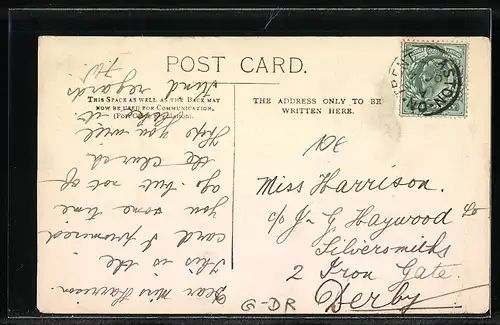 POST CARD.
THIS SPACE AS WELL AS THE BACK MAY
NOW BE USED FOR COMMUNICATION.
(Post Office Regulation).
THE ADDRESS ONLY TO BE
WRITTEN HERE.
Dear Miss Harrison.
This is the
card I promised
you some time
ago. but not of
the church
Hope you will
like it
Kind regards
Miss Harrison.
c/o J. G. Haywood
Silversmiths
2 Iron Gate.
Derby
G-DR